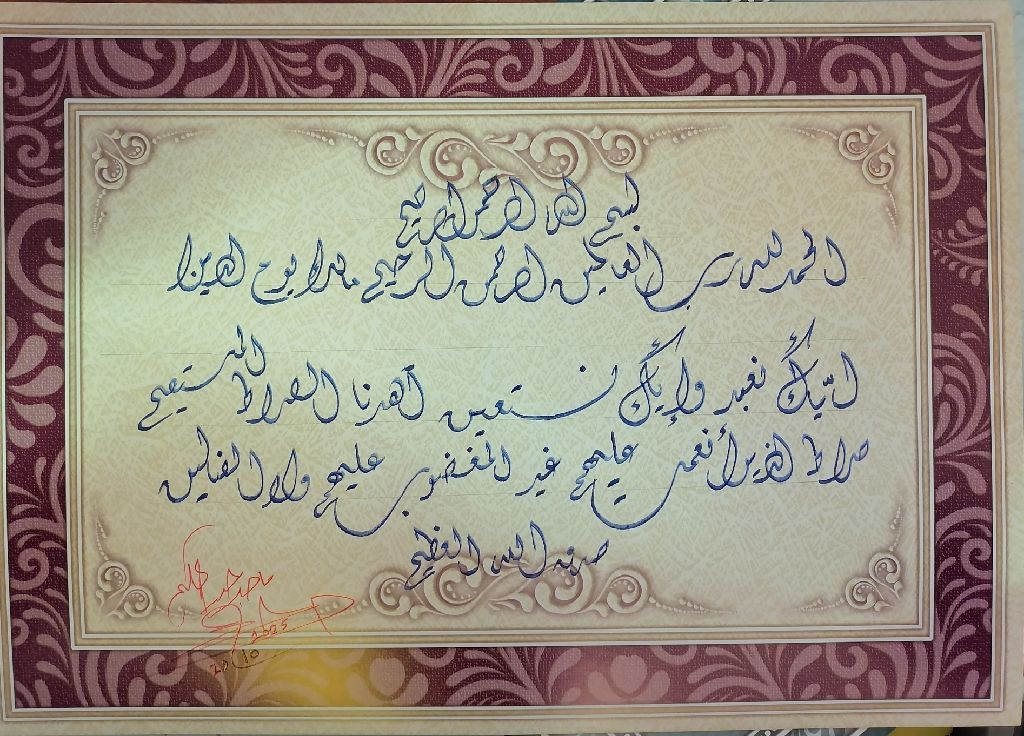 بسم الله الرحمن الرحيم
الحمد لله رب العالمين الرحمن الرحيم مالك يوم الدين
اياك نعبد وإياك نستعين اهدنا الصراط المستقيم
صراط الذين أنعمت عليهم غير المغضوب عليهم ولا الضالين
صدق الله العظيم
2025
20/10